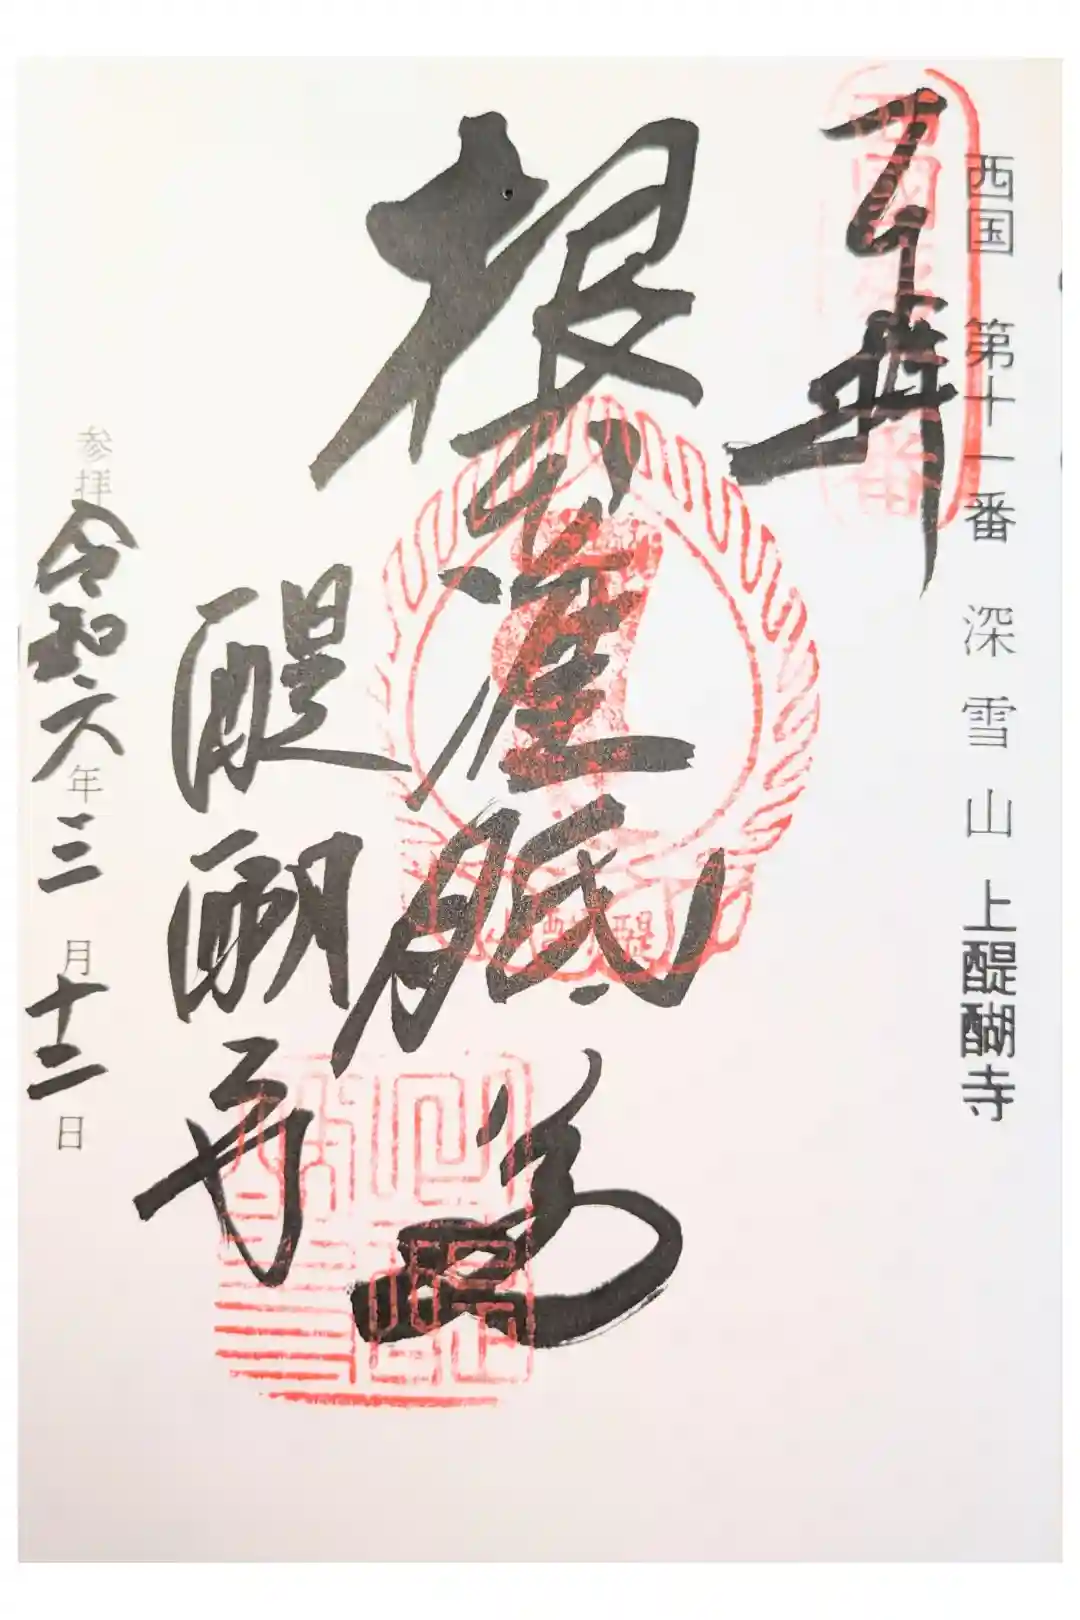 西国 第十一番 深雪山 上醍醐寺
奉拝
根本准胝尊
醍醐寺
参拝 令和六年 三月 十二日